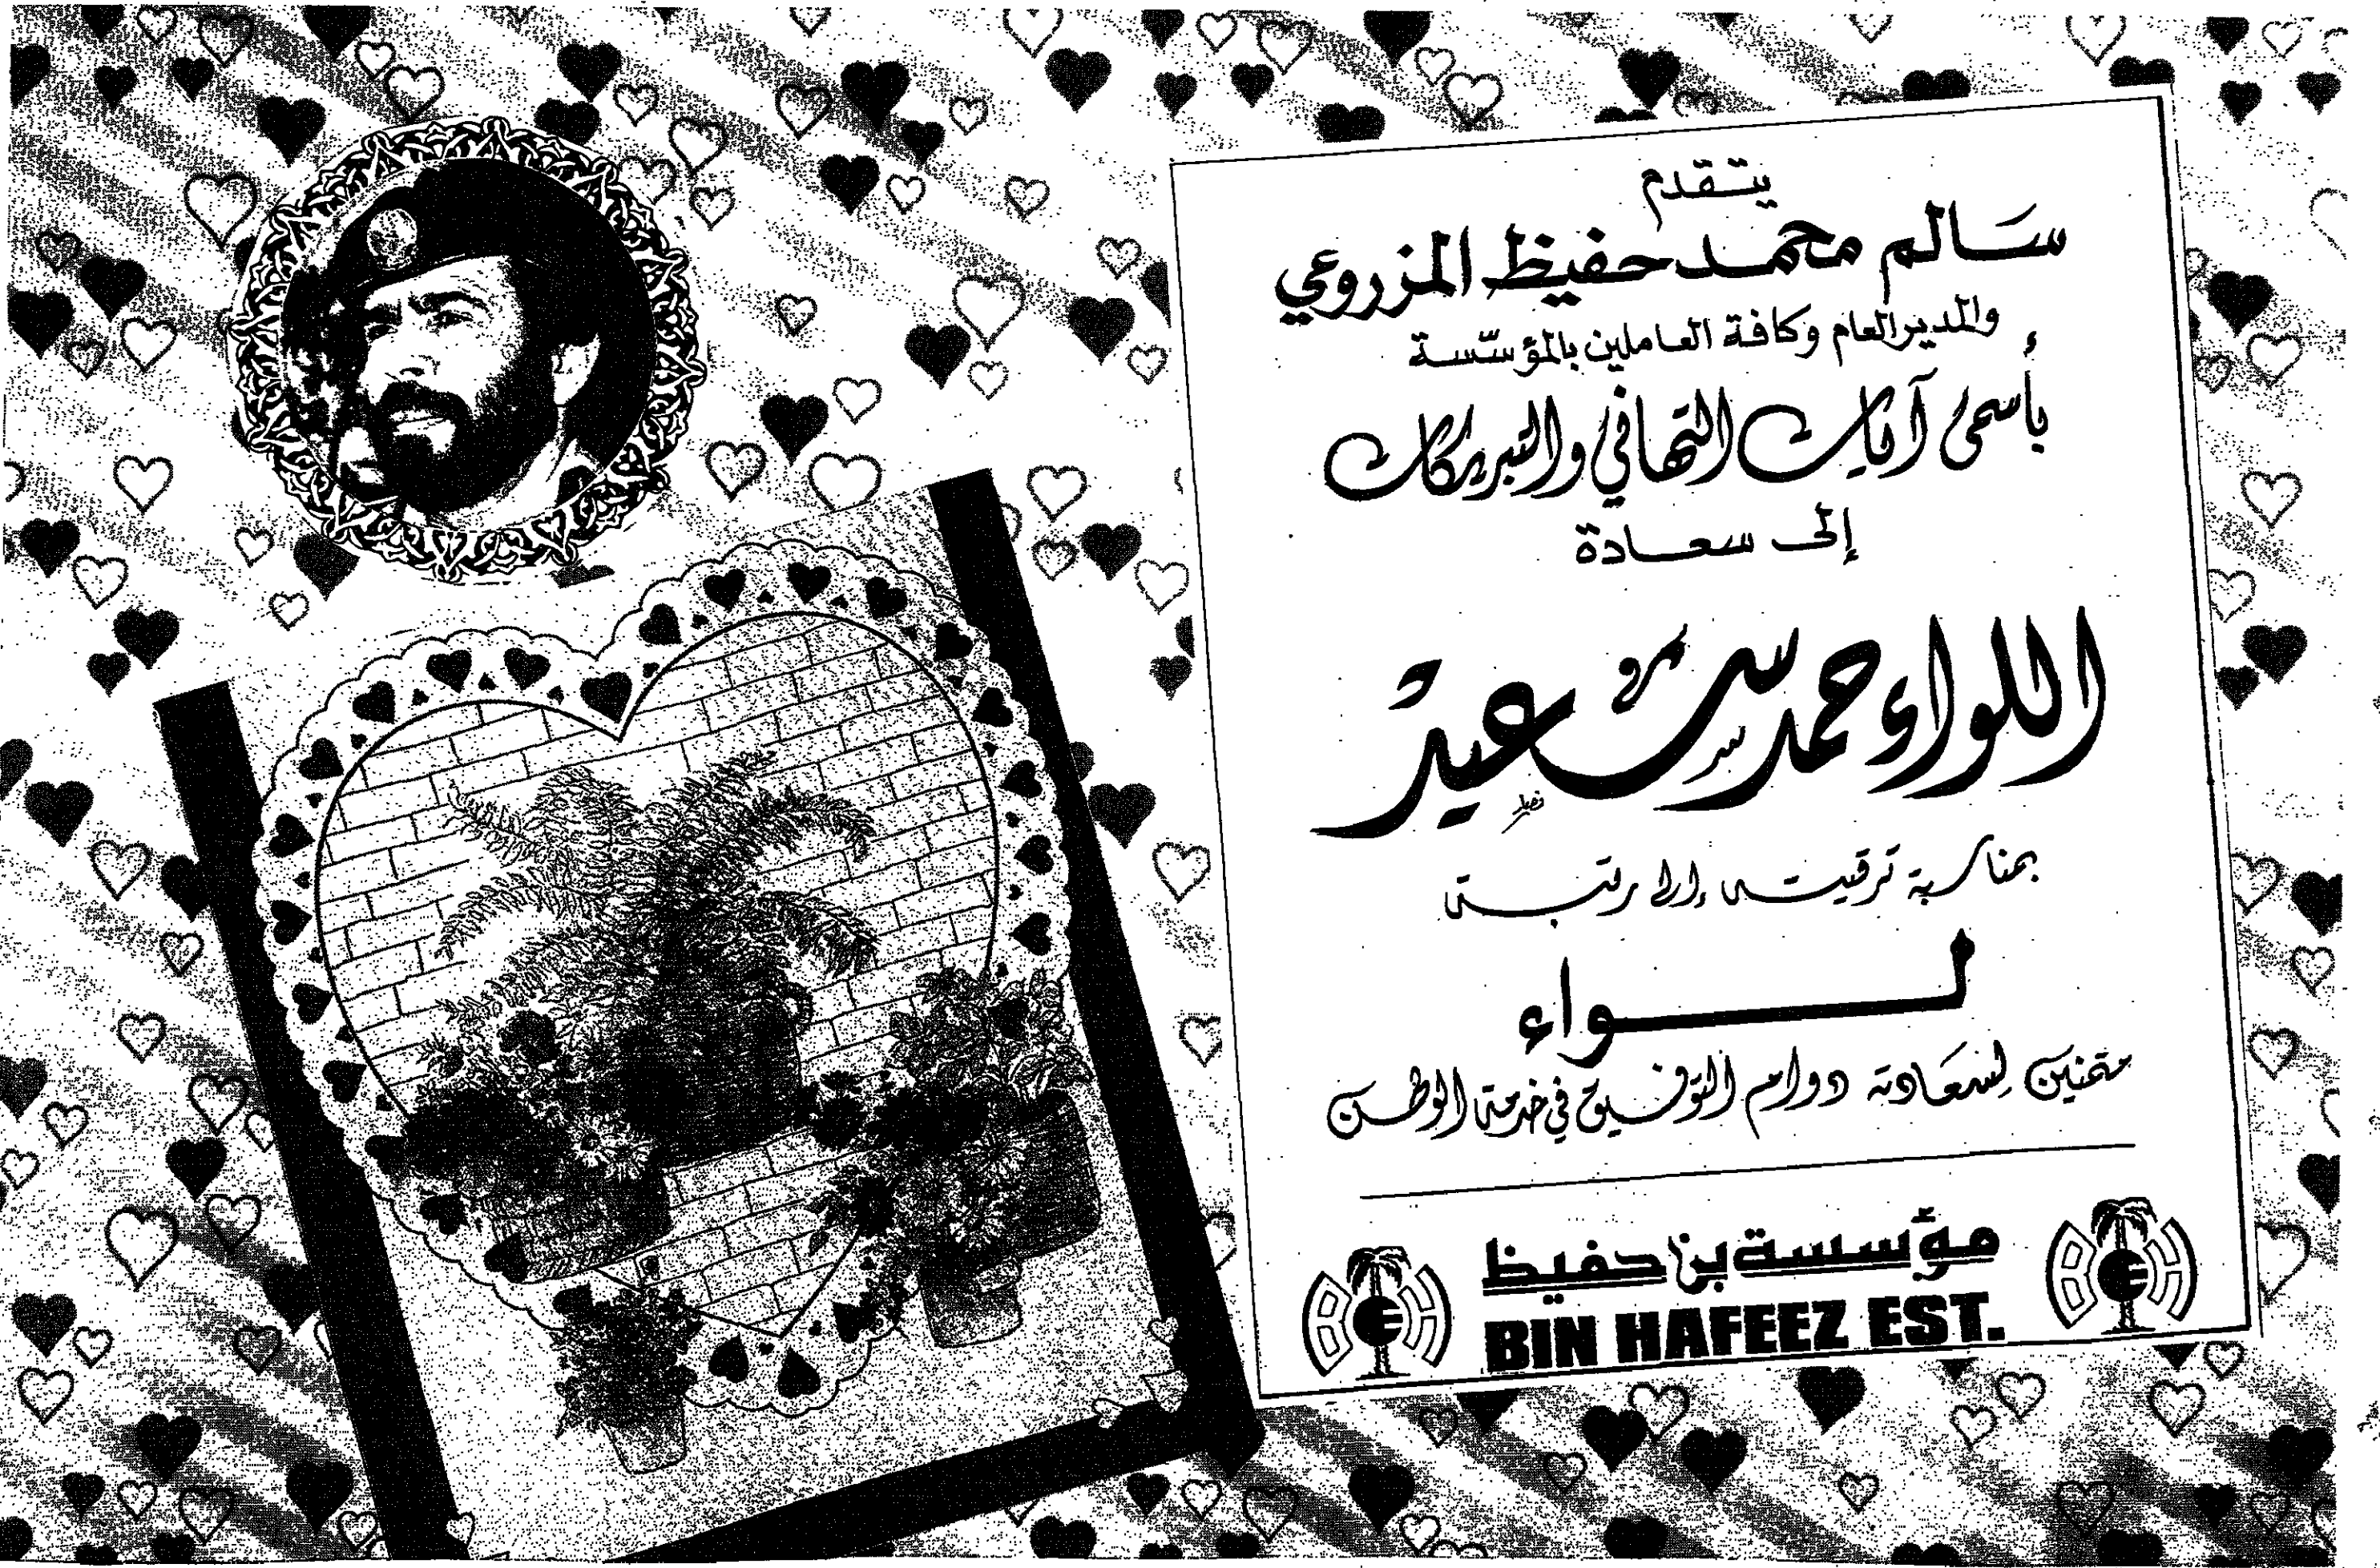 يتقدم
سالم محمد حفيظ المزروعي
والمدير العام وكافة العاملين بالمؤسّسة
بأسمى آيات التهاني والتبريكات
إلى سعادة
اللواء حمد سعيد
بمناسبة ترقيته إلى رتبة
لواء
متمنين لسعادته دوام التوفيق في خدمة الوطن
مؤسسة بن حفيظ
BIN HAFEEZ EST.